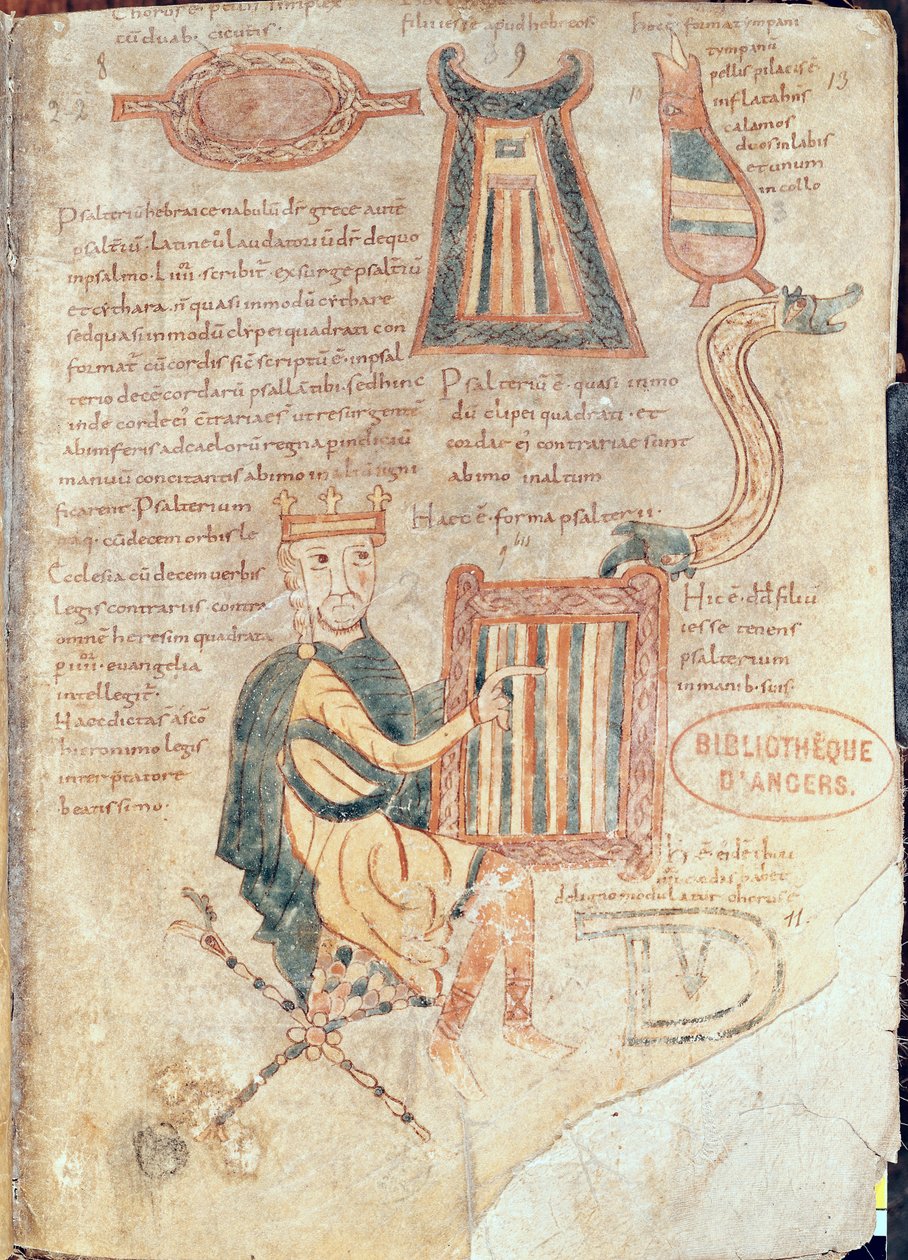 Chorus est pellis simplex
cū duab· cicutis·
8
22
filii iesse apud hebreos
39
Haec forma tympani
tympanū
pellis pilacis ē·
inflatabilis
calamos
duos in labis
et unum
in collo
10
13
3
Psalteriū hebraice nabulū dr̄ grece autē
psalt̄iū· Latine ů laudatoriū dr̄ de quo
in psalmo· L· iiii· scribit̄· exsurge psalt̄iū
et cythara· n̄ quasi in modū cythare
sed quasi in modū clypei quadrati con
format̄ cū cordis sic̄ scriptū ē· in psal
terio decē cordarū psallite ibi· sed hinc
inde corde ei c̄trariae s̄ ut resurgentē
ab inferis ad caeloru regna p indiciū
manuū concitantis ab imo in altū signi
ficarent· Psalterium
itaq· cū decem
Ecclesia cū decem verbis
legis contrariis contra
omnē heresim quadrata
p iiii· evangelia
intellegit̄·
Haec dicta s̄ a sc̄o
hieronimo legis
interp̄tatore
beatissimo·
Psalteriū ē· quasi in mo
dū clipei quadrati· et
cordae ei contrariae sunt
ab imo in altum
Haec ē· forma psalterii·
9 bis
Hic ē· dd̄ filiū
iesse tenens
psalterium
in manib· suis·
BIBLIOTHÈQUE
D'ANGERS.
de ligno modulatur chorus ē
11